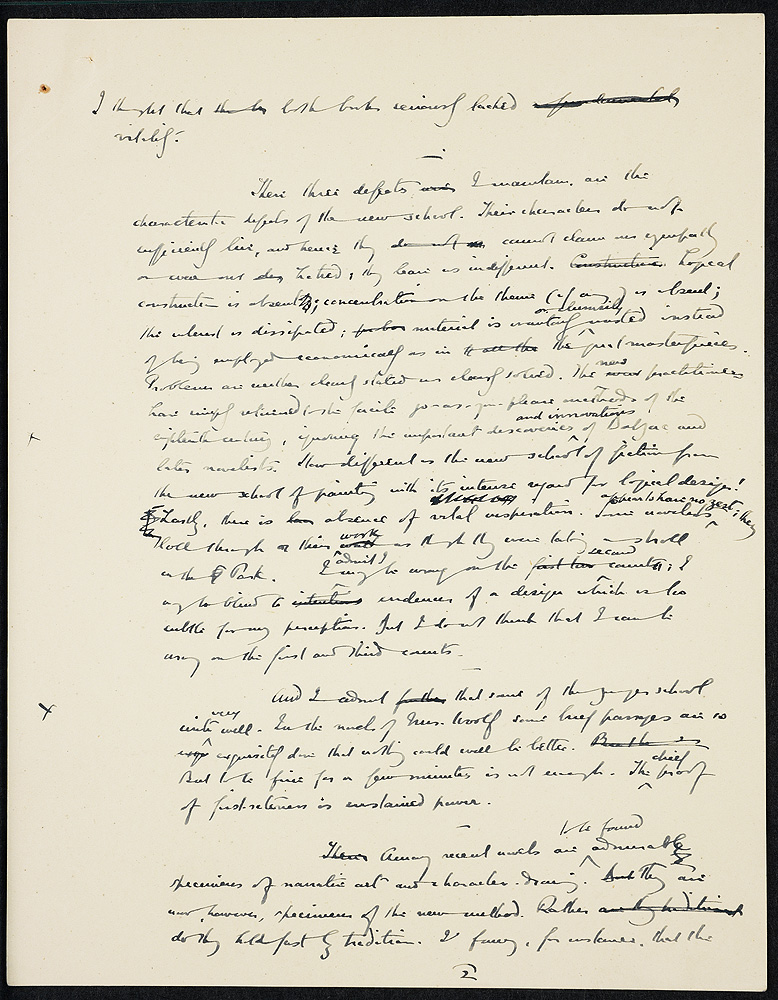 I thought that both books seriously lacked
vitality.
These three defects I maintain, are the
characteristic defects of the new school. Their characters do not
sufficiently live, and hence they cannot claim our sympathy
or even our hatred; they leave us indifferent. Logical
construction is absent; concentration on the theme (if any) is absent;
the interest is dissipated; material is wasted instead
of being employed economically as in the great masterpieces.
Problems are neither clearly stated nor clearly solved. The new practitioners
have simply returned to the facile go-as-you-please methods of the
eighteenth century, ignoring the important discoveries and innovations of Balzac and
later novelists. How different is the new school of fiction from
the new school of painting with its intense regard for logical design!
Lastly, there is absence of vital inspiration. Some novelists appear to have no zest; they
loll through their work as though they were taking a stroll
in the Park. I admit I may be wrong on the second count; I
may be blind to evidences of a design which is too
subtle for my perception. But I do not think that I can be
wrong on the first and third counts.
And I admit that some of the younger school
write very well. In the novels of Mrs. Woolf some brief passages are so
exquisitely done that nothing could well be better.
But to be fine for a few minutes is not enough. The chief proof
of first-rateness is sustained power.
Among recent novels are to be found admirable
specimens of narrative art and character-drawing. They are
not, however, specimens of the new method. Rather
do they hold fast by tradition. I fancy, for instance, that the
2